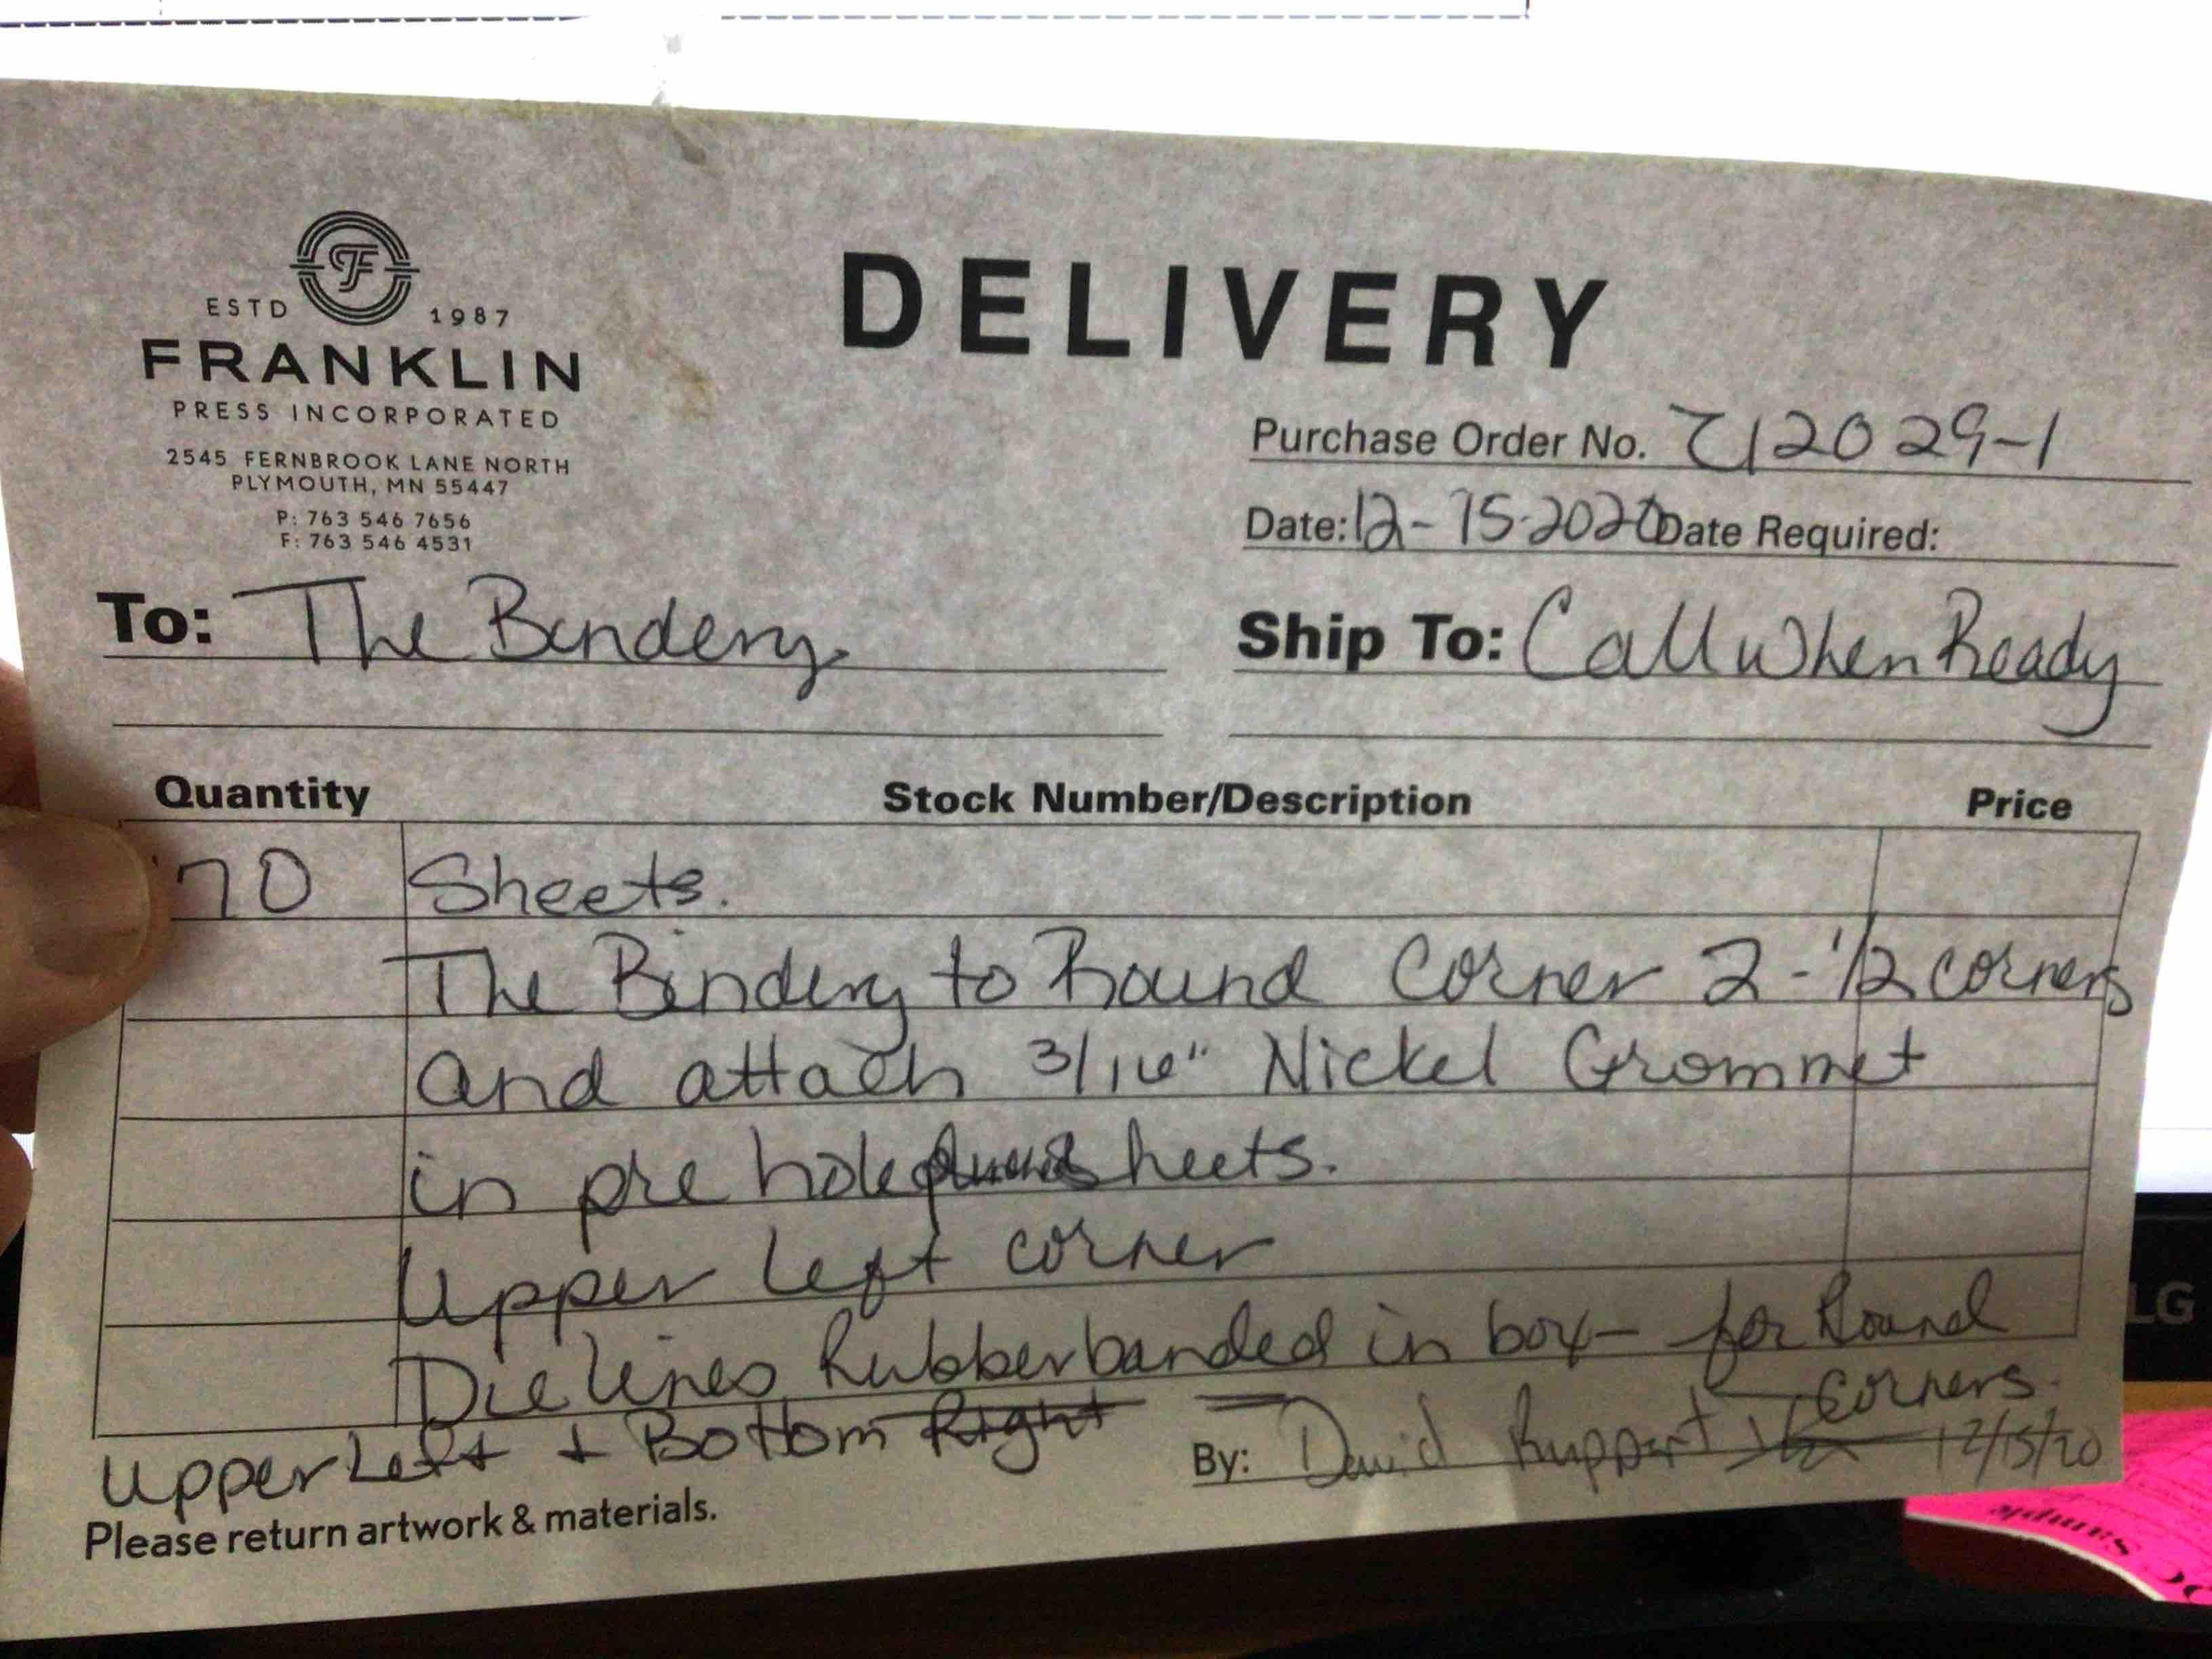 ESTD 1987
FRANKLIN
PRESS INCORPORATED
2545 FERNBROOK LANE NORTH
PLYMOUTH, MN 55447
P: 763 546 7656
F: 763 546 4531
DELIVERY
Purchase Order No. 212029-1
Date: 12-15-2020 Date Required:
To: The Bindery
Ship To: Call When Ready
Quantity Stock Number/Description Price
70 Sheets.
The Bindery to Round Corner 2-1/2 corners
and attach 3/16" Nickel Grommet
in pre hole sheets.
Upper Left corner
Die lines Rubberbanded in box- for Round
Corners.
Upper Left + Bottom Right
By: David Ruppert 12/15/20
Please return artwork & materials.
LG